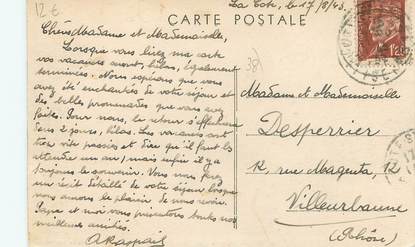 12 €
La Côte, le 17/8/43
CARTE POSTALE
Chère Madame et Mademoiselle,
Lorsque vous lirez ma carte
vos vacances auront, hélas, également
terminées. Nous espérons que vous
avez été enchantées de votre séjour et
des belles promenades que vous avez
faites. Pour nous, le retour s'effectuera
dans 2 jours, hélas. Les vacances sont
bien vite passées et dieu qu'il faut les
attendre un an, mais enfin il y a
toujours le souvenir. Vous nous ferez
un récit détaillé de votre séjour lorsque
nous aurons le plaisir de nous revoir.
Papa et moi vous présentons toutes nos
meilleures amitiés.
A Raspail
38)
1f20
Madame et Mademoiselle
Desperrier
12, rue Magenta, 12
Villeurbanne
(Rhône)